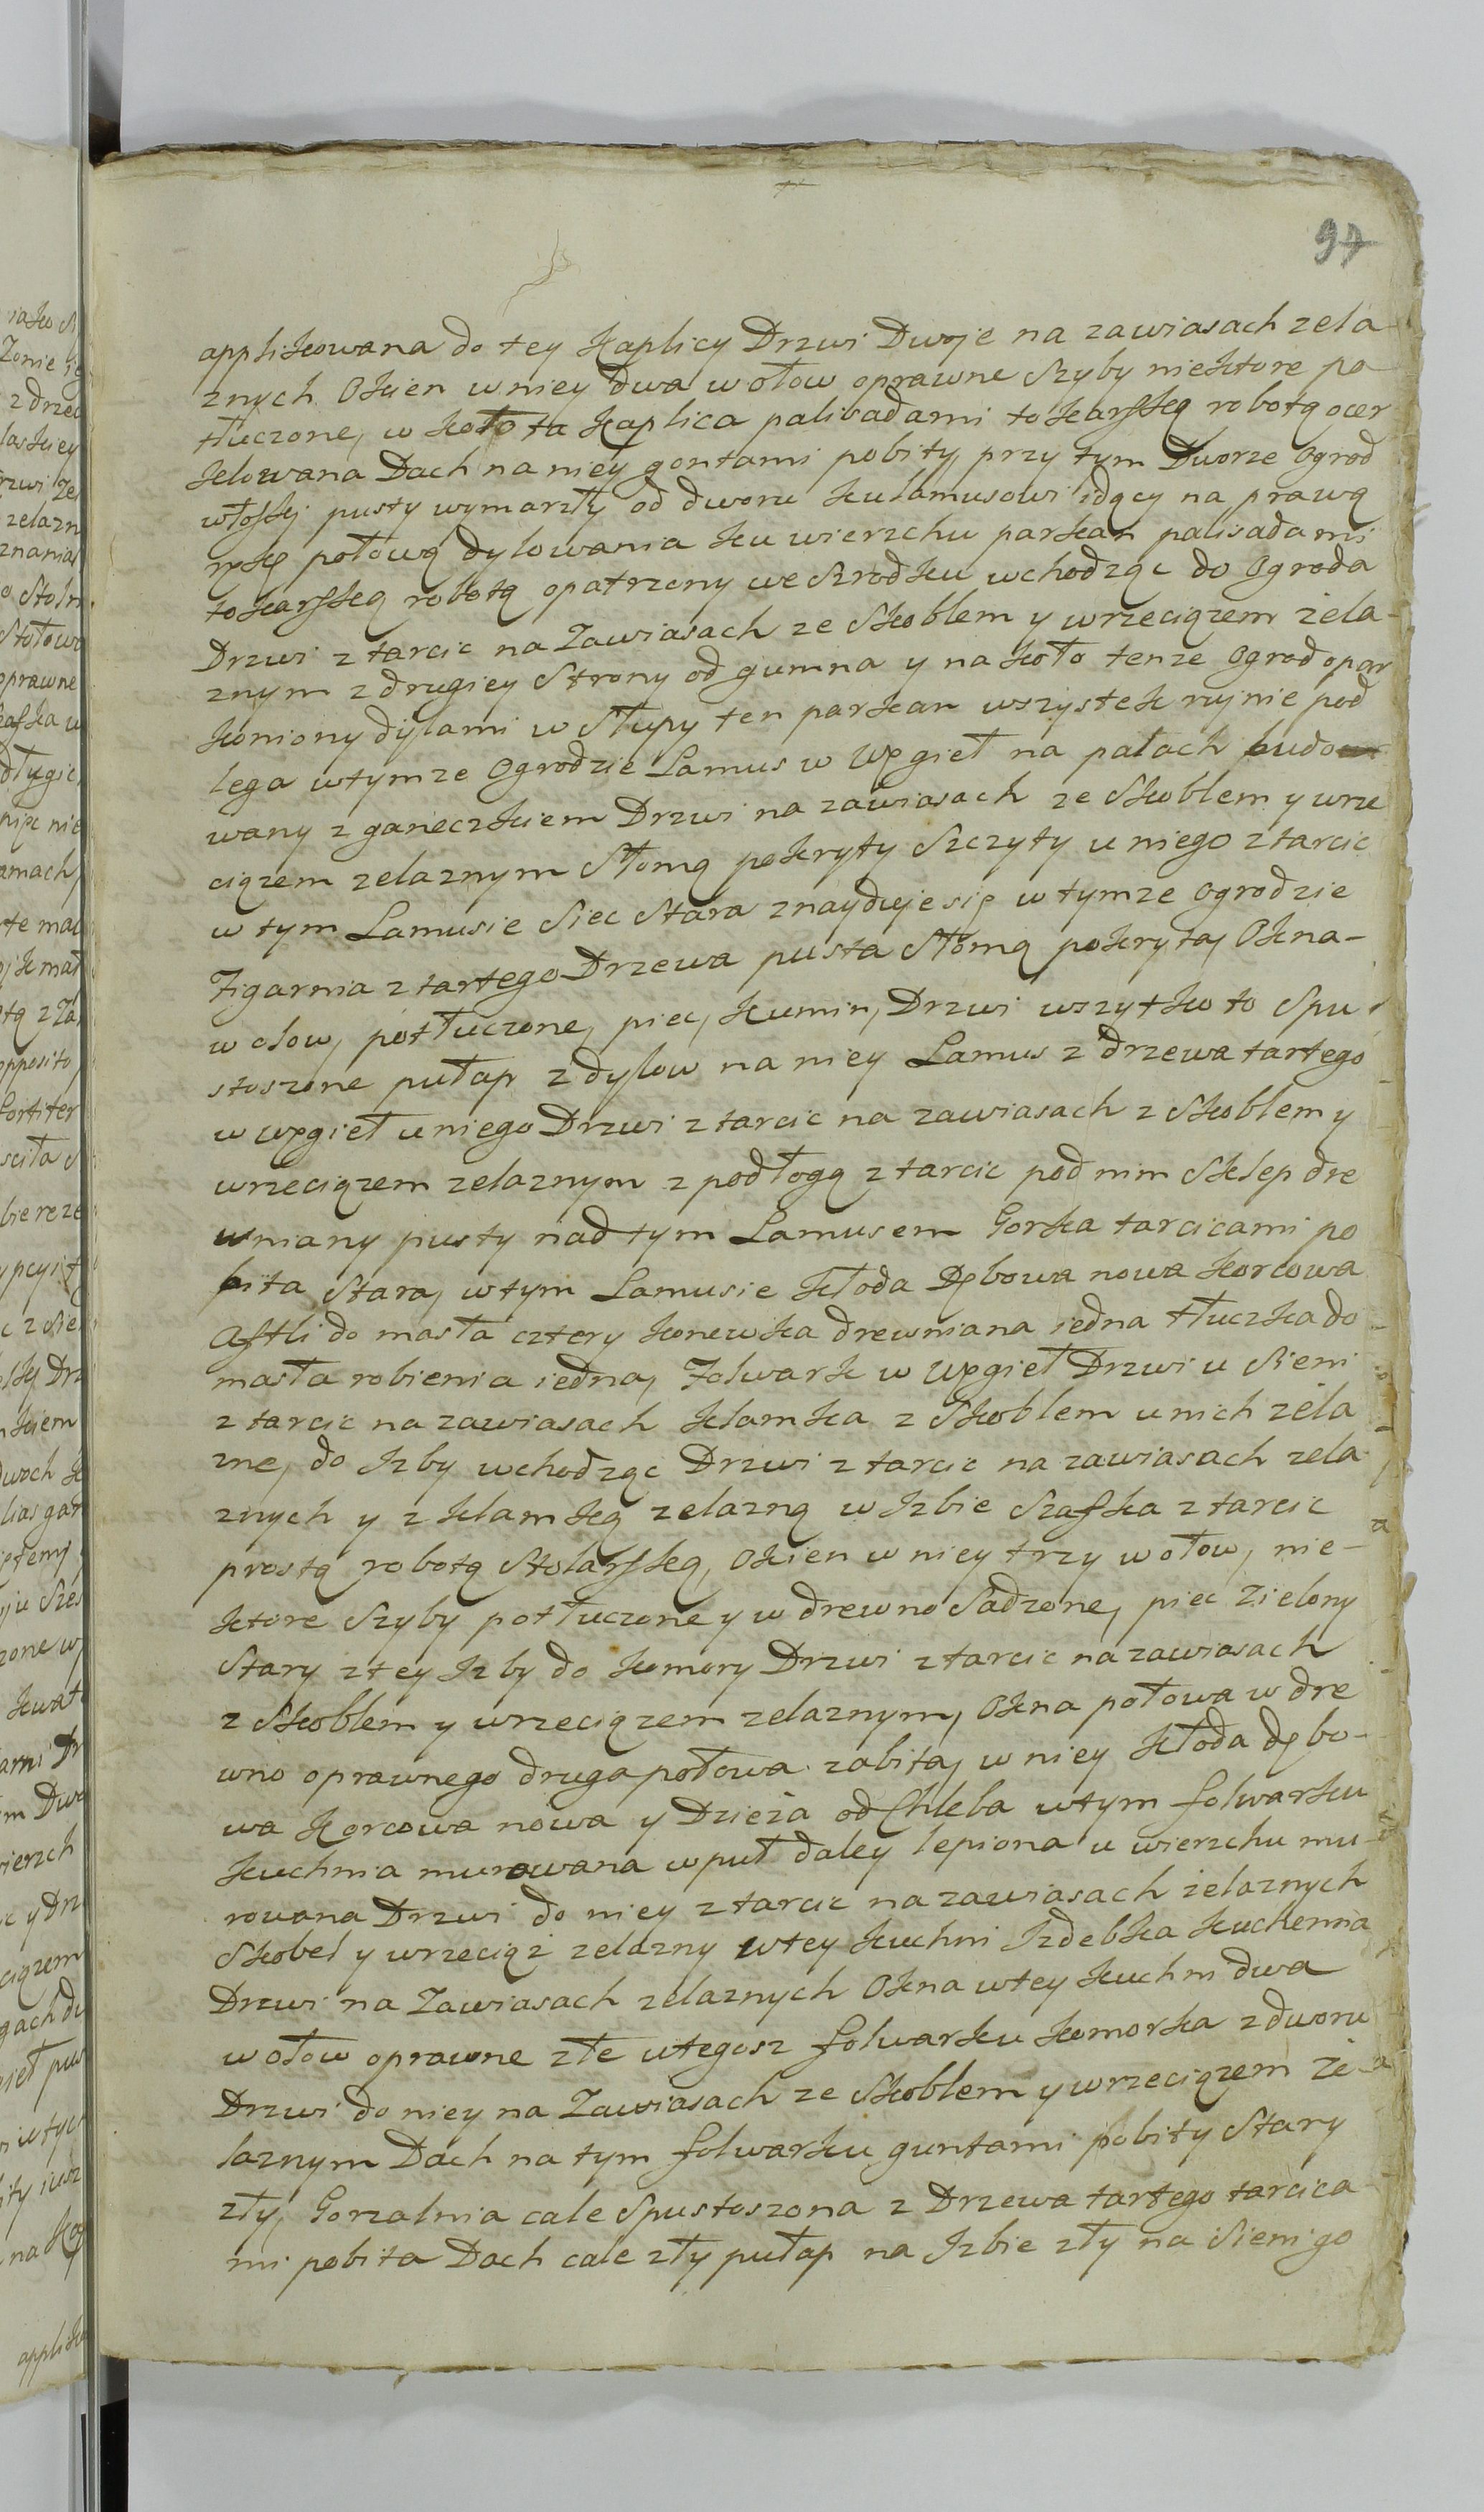 97
applikowana do tey Kaplicy Drzwi Dwoje na zawiasach zela-
znych Okien w niey dwa w ołow oprawne Szyby niektore po
tłuczone, w koło ta Kaplica palisadami tokarską robotą ocer
kelowana Dach na niey gontami pobity, przy tym Dworze Ogrod
włoski pusty wymarzły od dworu ku lamusowi idący na prawą
rękę połową dylowania ku wierzchu parkan palisadami
tokarską robotą opatrzony we Szrodku wchodząc do Ogroda
Drzwi z tarcic na Zawiasach ze Skoblem y wrzeciązem żela-
znym z drugiey Strony od gumna y na koło tenze Ogrod opar
koniony dylami w Słupy ten parkan wszystek rujnie pod
lega w tymze Ogrodzie Lamus w Węgieł na palach budo
wany z ganeczkiem Drzwi na zawiasach ze Skoblem y wrze
ciązem zelaznym Słomą pokryty Szczyty u niego z tarcic
w tym Lamusie Siec Stara znayduje się w tymze Ogrodzie
Figarnia z tartego Drzewa pusta Słomą pokryta, Okna-
w ołow, potłuczone, piec, kumin, Drzwi wszytko to Spu
stoszone pułap z dylow na niey Lamus z drzewa tartego
w węgieł u niego Drzwi z tarcic na zawiasach z Skoblem y
wrzeciązem zelaznym z podłogą z tarcic pod nim Sklep dre
wniany pusty nad tym Lamusem Gorka tarcicami po
bita Stara, w tym Lamusie Kłoda Dębowa nowa korcowa
Astli do masła cztery konewka drewniana iedna tłuczka do
masła robienia iedna, Folwark w Węgieł Drzwi u Sieni
z tarcic na zawiasach klamka z Skoblem u nich żela
zne, do Izby wchodząc Drzwi z tarcic na zawiasach zela
znych y z klamką zelazną w Izbie Szafka z tarcic
prostą robotą Stolarską, Okien w niey trzy w ołow, nie-
ktore Szyby potłuczone y w drewno Sadzone, piec Zielony
Stary z tey Izby do komory Drzwi z tarcic na zawiasach
z Skoblem y wrzeciązem zelaznym, Okna połowa w dre
wno oprawnego druga połowa zabita, w niey Kłoda dębo-
wa Korcowa nowa y Dzieża od Chleba w tym folwarku
kuchnia murowana w puł daley lepiona u wierzchu mu-
rowana Drzwi do niey z tarcic na zawiasach żelaznych
Skobel y wrzeciąż zelazny w tey kuchni Izdebka kuchenna
Drzwi na Zawiasach zelaznych Okna w tey kuchni dwa
w ołow oprawne złe u tegosz folwarku komorka z dworu
Drzwi do niey na Zawiasach ze Skoblem y wrzeciązem że-
laznym Dach na tym folwarku guntami pobity Stary
zły, Gorzalnia cale Spustoszona z Drzewa tartego tarcica
mi pobita Dach cale zły pułap na Izbie zły na Sieni go